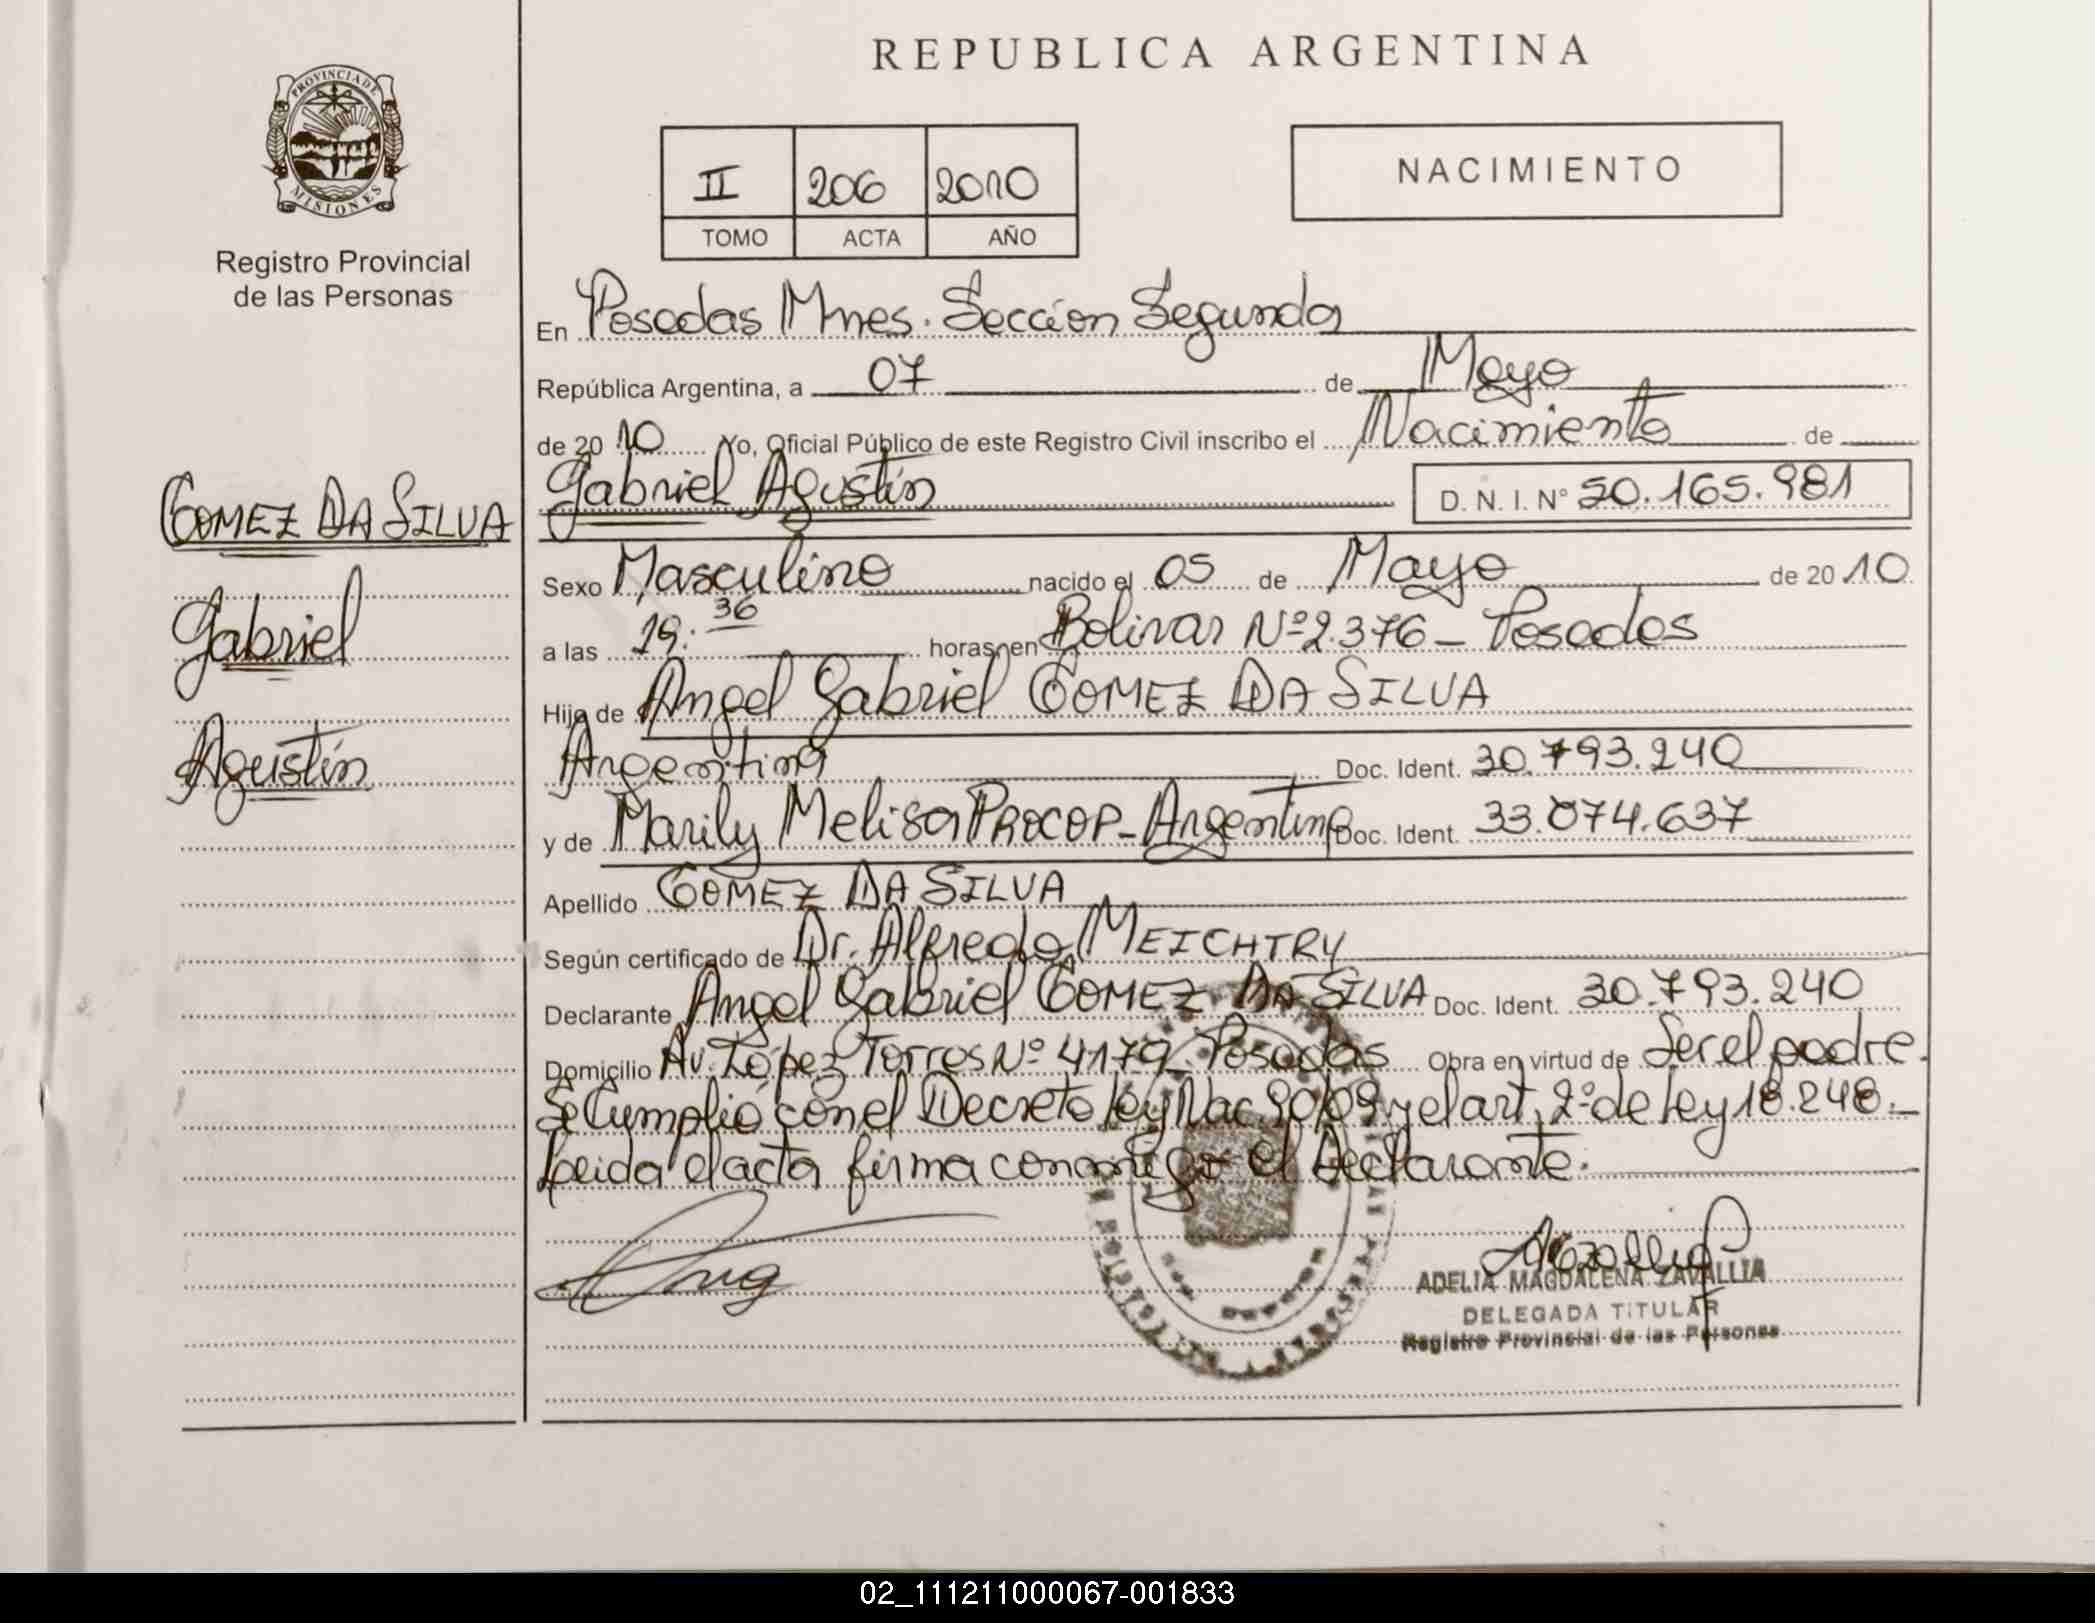 REPUBLICA ARGENTINA
PROVINCIA DE
MISIONES
Registro Provincial
de las Personas
II 206 2010
TOMO ACTA AÑO
NACIMIENTO
En Posadas Mnes. Sección Segunda
República Argentina, a 07 de Mayo
de 2010 Yo, Oficial Público de este Registro Civil inscribo el Nacimiento de
Gabriel Agustín D. N. I. N° 50.165.981
GOMEZ DA SILVA
Gabriel
Agustín
Sexo Masculino nacido el 05 de Mayo de 2010
a las 19:36 horas en Bolivar Nº 2.376 - Posadas
Hijo de Angel Gabriel GOMEZ DA SILVA
Argentina Doc. Ident. 30.793.240
y de Marily Melisa PROCOP - Argentina Doc. Ident. 33.074.637
Apellido GOMEZ DA SILVA
Según certificado de Dr. Alfredo MEICHTRY
Declarante Angel Gabriel GOMEZ DA SILVA Doc. Ident. 30.793.240
Domicilio Av. López Torres Nº 4179. Posadas Obra en virtud de Ser el padre.
Se Cumplió con el Decreto ley Nac. 90/09 y el art. 2º de Ley 18.248.-
Leida el acta firma conmigo el Declarante.
ADELIA MAGDALENA ZAVALLIA
DELEGADA TITULAR
Registro Provincial de las Personas
02_111211000067-001833